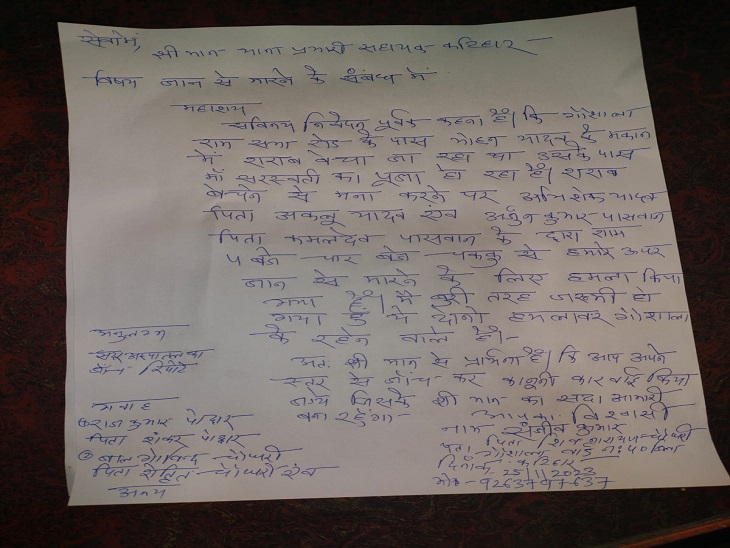 सेवामें,
श्री मान थाना प्रभारी सहायक कटिहार
विषय जान से मारने के संबंध में
महाशय
सविनय निवेदन पूर्वक कहना है। कि गौशाला
राम सभा रोड के पास मोहन यादव के मकान
में शराब बेचा जा रहा था उसके पास
माँ सरस्वती का पूजा हो रहा है। शराब
बेचने से मना करने पर अभिशेक यादव
पिता अकलू यादव एंव अर्जुन कुमार पासवान
पिता कमलदेव पासवान के द्वारा शाम
5 बजे चार बजे चक्कु से हमारे ऊपर
जान से मारने के लिए हमला किया
गया है। मैं बुरी तरह जख्मी हो
गया हूँ ये दोनो हमलावर गौशाला
के रहने वाले है।-
अतः श्री मान से प्रार्थना है। कि आप अपने
स्तर से जाँच कर कानूनी कारवाई किया
जाये जिसके श्री मान का सदा आभारी
बना रहूँगा-
आपका विश्वासी
नाम संजीव कुमार
पिता शिव नारायण चौधरी
पता गौशाला वार्ड न:
कटिहार
दिनांक 25/1/2023
मो०- 9263797637
अनुलग्नक
सदर अस्पताल का
रिपोर्ट
गवाह
① राज कुमार पोद्दार
पिता शंकर पोद्दार
② बाल गोविन्द चौधरी
पिता रोहित चौधरी एंव
अन्य